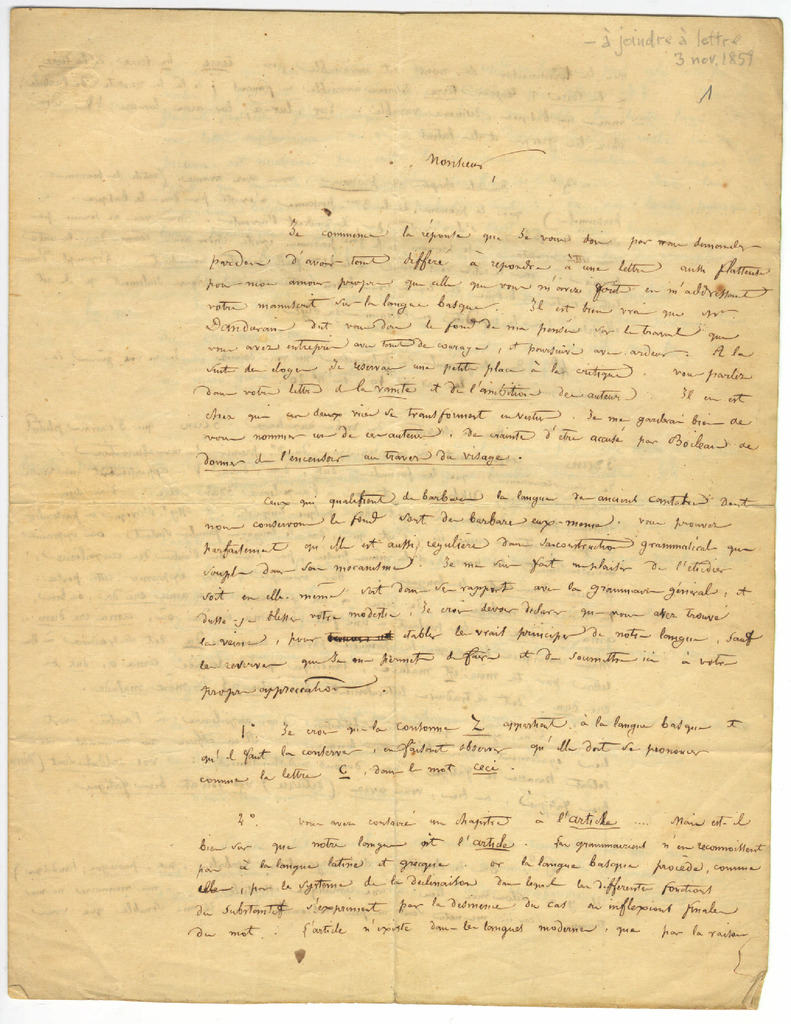 — à joindre à lettre
3 nov. 1859
1
Monsieur,
Je commence la réponse que Je vous dois par vous demander
pardon d'avoir tant differé à repondre à une lettre aussi flatteuse
pour mon amour propre que celle que vous m'avez fait en m'addressant
votre manuscrit sur la langue basque. Il est bien vrai que Mr.
Dandurain dut vous dire le fond de ma pensée sur le travail que
vous avez entrepris avec tant de courage, et poursuivi avec ardeur. A la
suite des eloges Je reservais une petite place à la critique. vous parlez
dans votre lettre de la vanité et de l'ambition des auteurs. Il en est
chez qui ces deux vices se transforment en vertu. Je me garderai bien de
vous nommer un de ces auteurs, de crainte d'être accusé par Boileau de
donner de l'encensoir au travers du visage.
Ceux qui qualifient de barbare la langue des anciens cantabres dont
nous conservons le fond sont des barbares eux-mêmes. vous prouvez
parfaitement qu'elle est aussi reguliere dans sa construction grammatical que
souple dans son mecanisme. Je me suis fait un plaisir de l'étudier
soit en elle-même soit dans ses rapports avec la grammaire général, et
dussé-je blesser votre modestie, Je crois devoir declarer que vous avez trouvé
la veine, pour etablir les vrais principes de notre langue, sauf
les reserves que Je me permets de faire et de soumettre ici à votre
propre appreciation.
1° Je crois que la consonne Z appartient à la langue basque et
qu'il faut la conserver, en faisant observer qu'elle doit se prononcer
comme la lettre C, dans le mot ceci.
2° vous avez consacré un chapitre à l'article .... Mais est-il
bien sûr que notre langue ait l'article. Les grammairiens n'en reconnoissent
pas à la langue latine et grecque. or la langue basque procède, comme
elles, par le systeme de la declinaison dans lequel les differentes fonctions
du substantif s'expriment par la desinence du cas ou inflexions finales
du mot. L'article n'existe dans les langues modernes, que par la raison